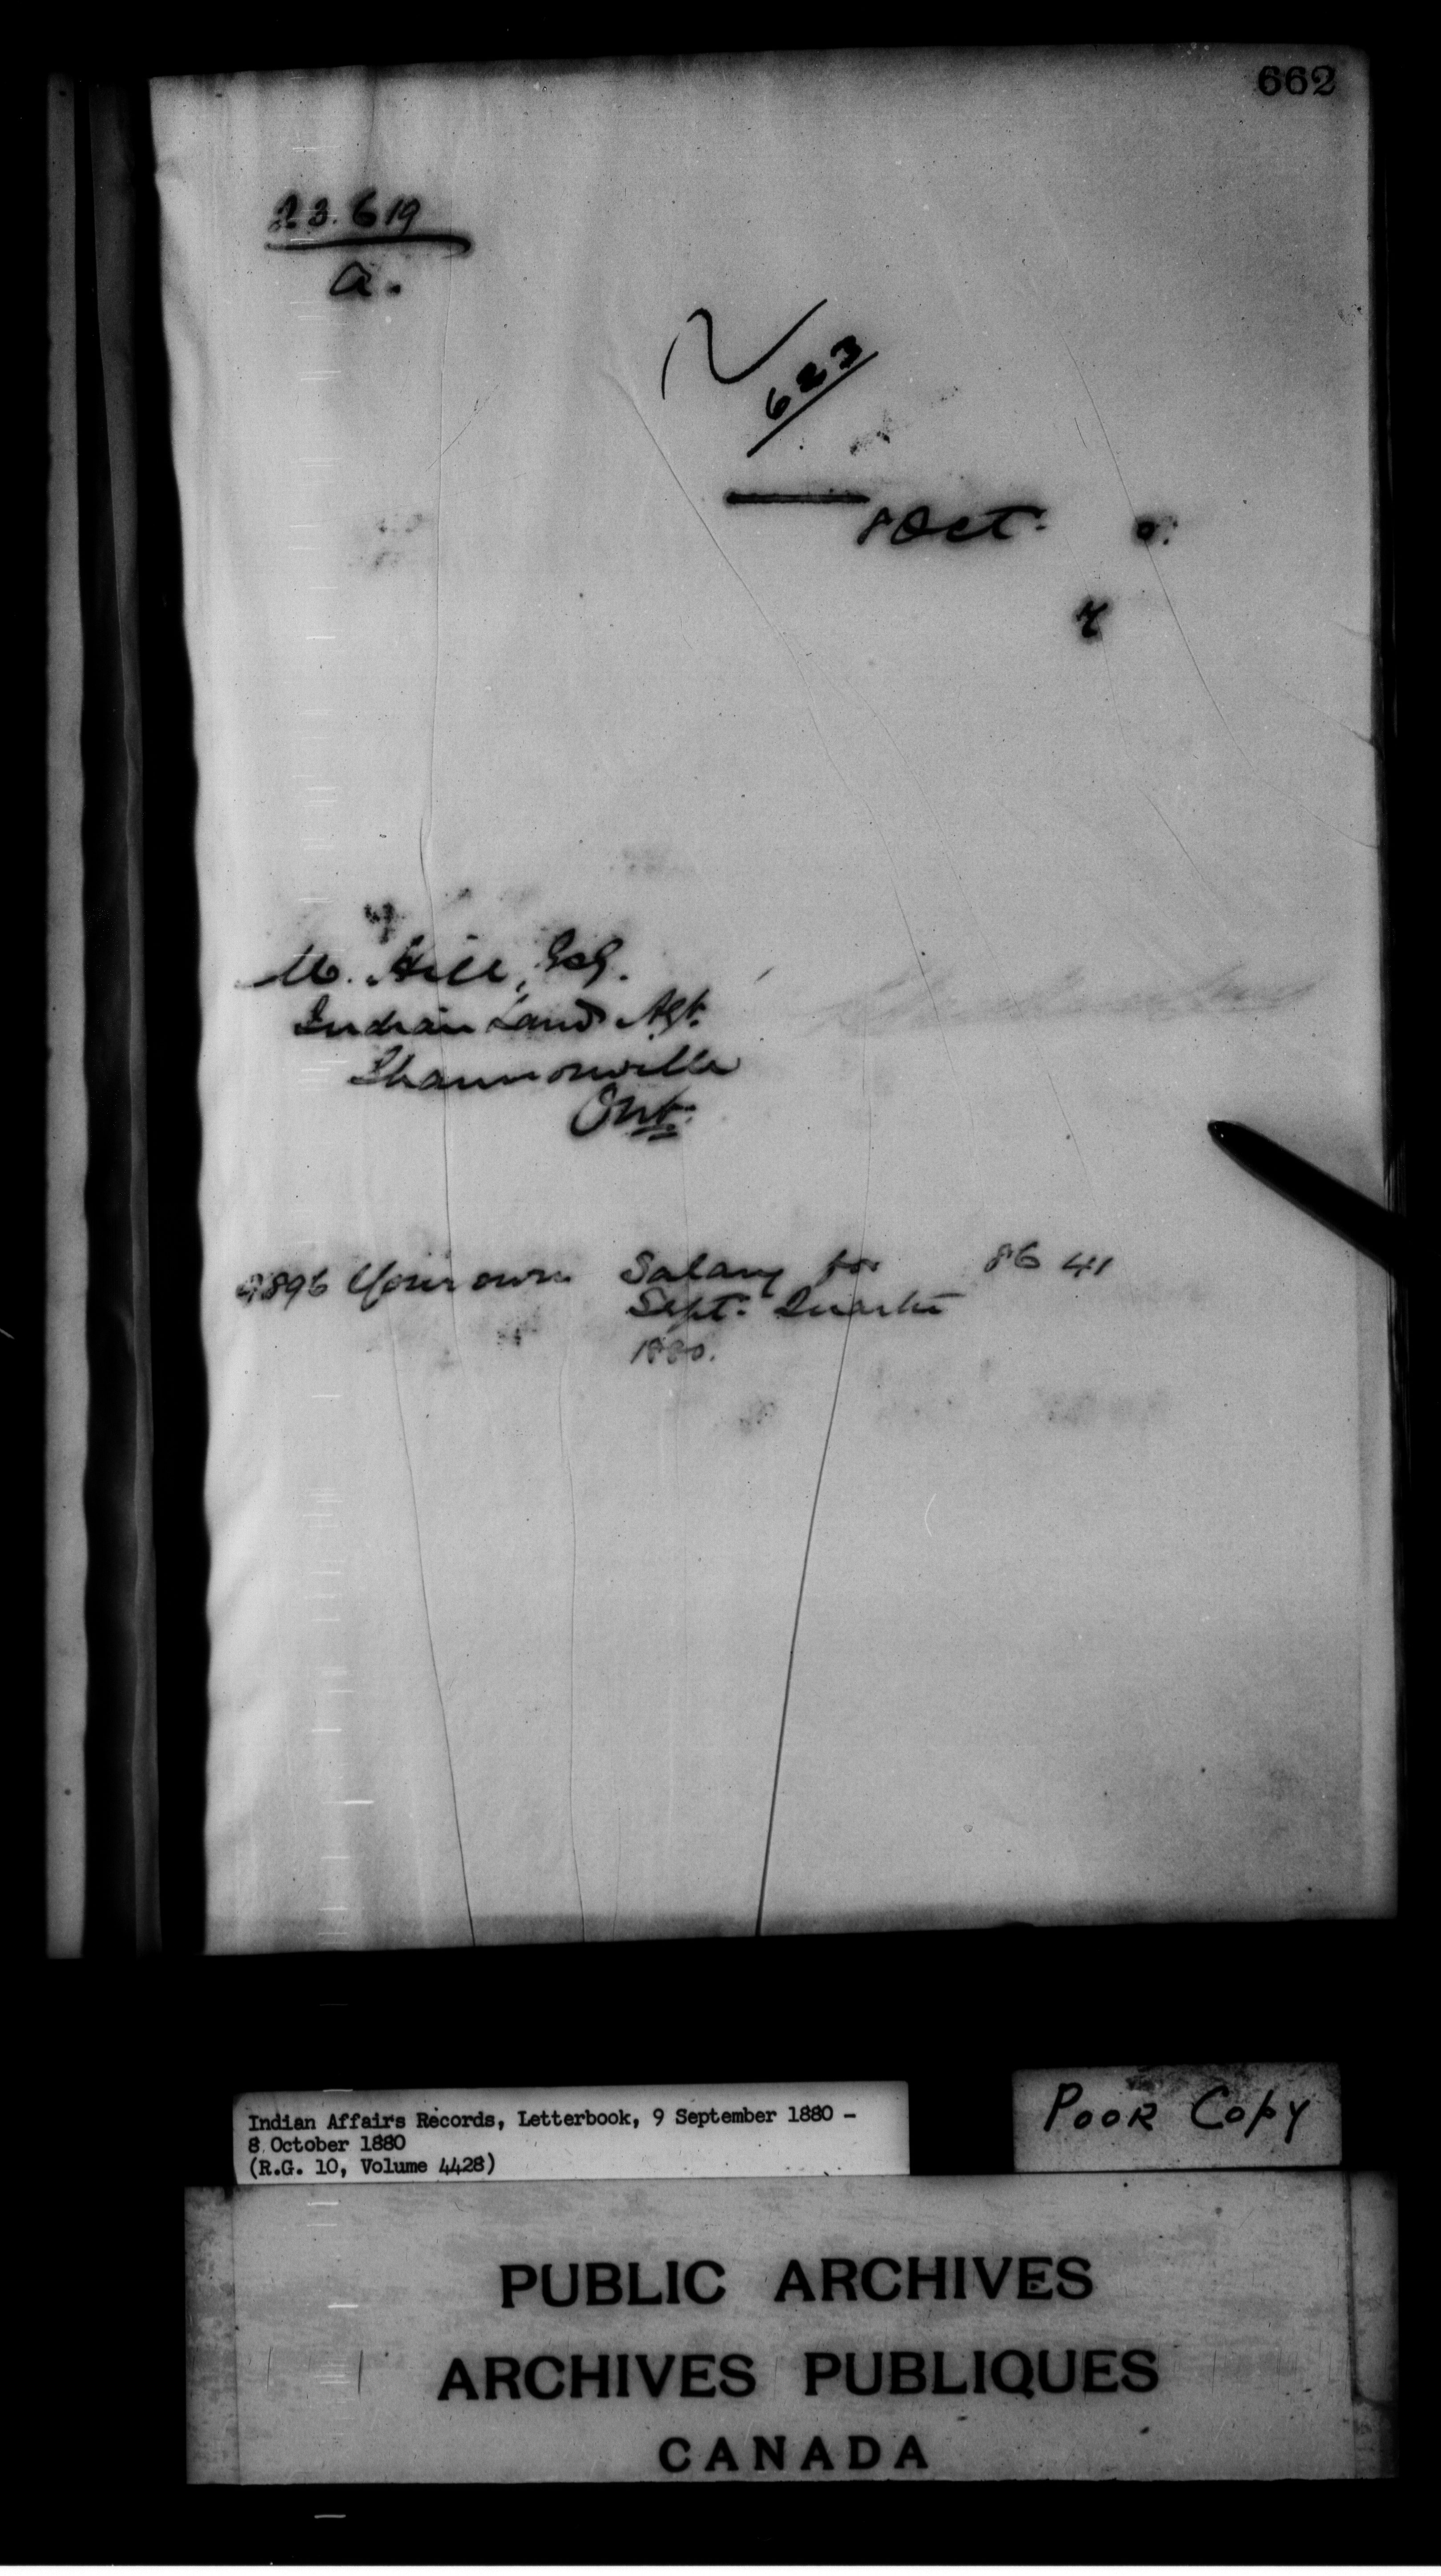 662
23.619
a.
623
8 Oct. 0.
M. Hill, Esq.
Indian Land Agt.
Shannonville
Ont.
9896 Your own Salary for 86 41
Sept. Quarter
1880.
Indian Affairs Records, Letterbook, 9 September 1880 –
8 October 1880
(R.G. 10, Volume 4428)
POOR Copy
PUBLIC ARCHIVES
ARCHIVES PUBLIQUES
CANADA